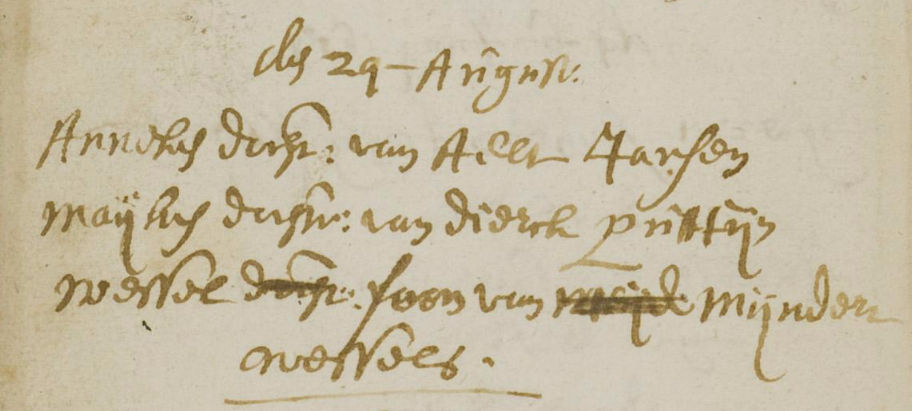 des 29 - August.
Annekes dochtr: van Aelt Jansen
Maijkes dochtr: van dierck puttijn
Wessel dochtr: soon van Mijndert
Wessels.